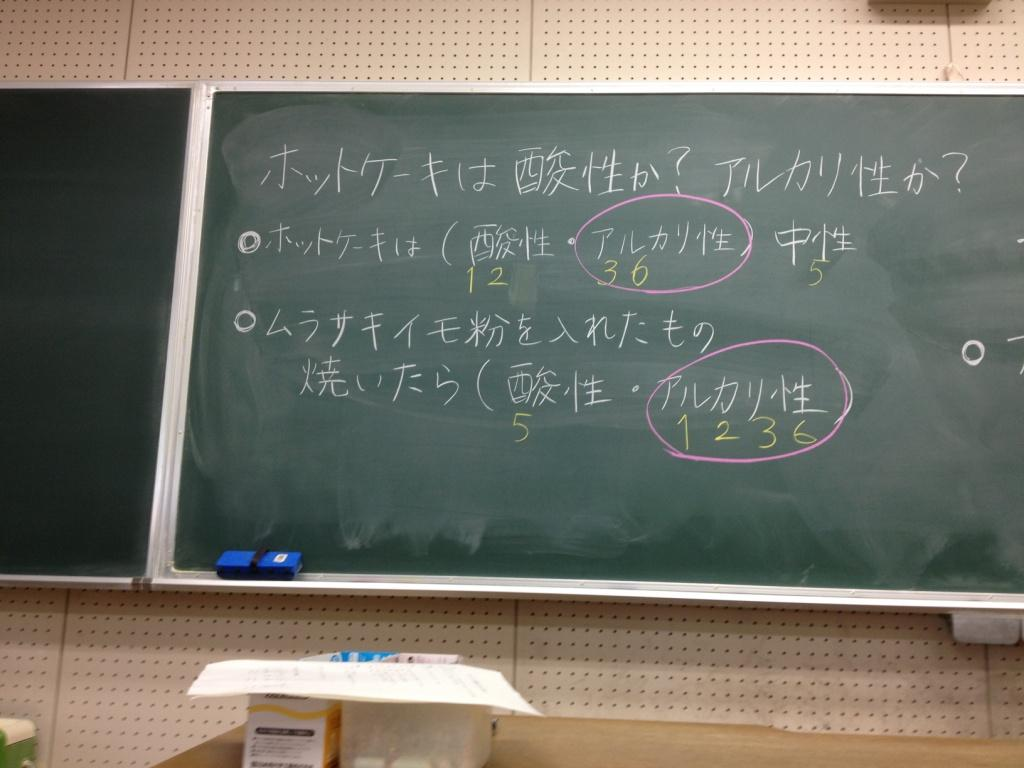 ホットケーキは酸性か？アルカリ性か？
◎ホットケーキは（酸性・アルカリ性）中性
12 36 5
○ムラサキイモ粉を入れたもの
焼いたら（酸性・アルカリ性）
5 1236
○